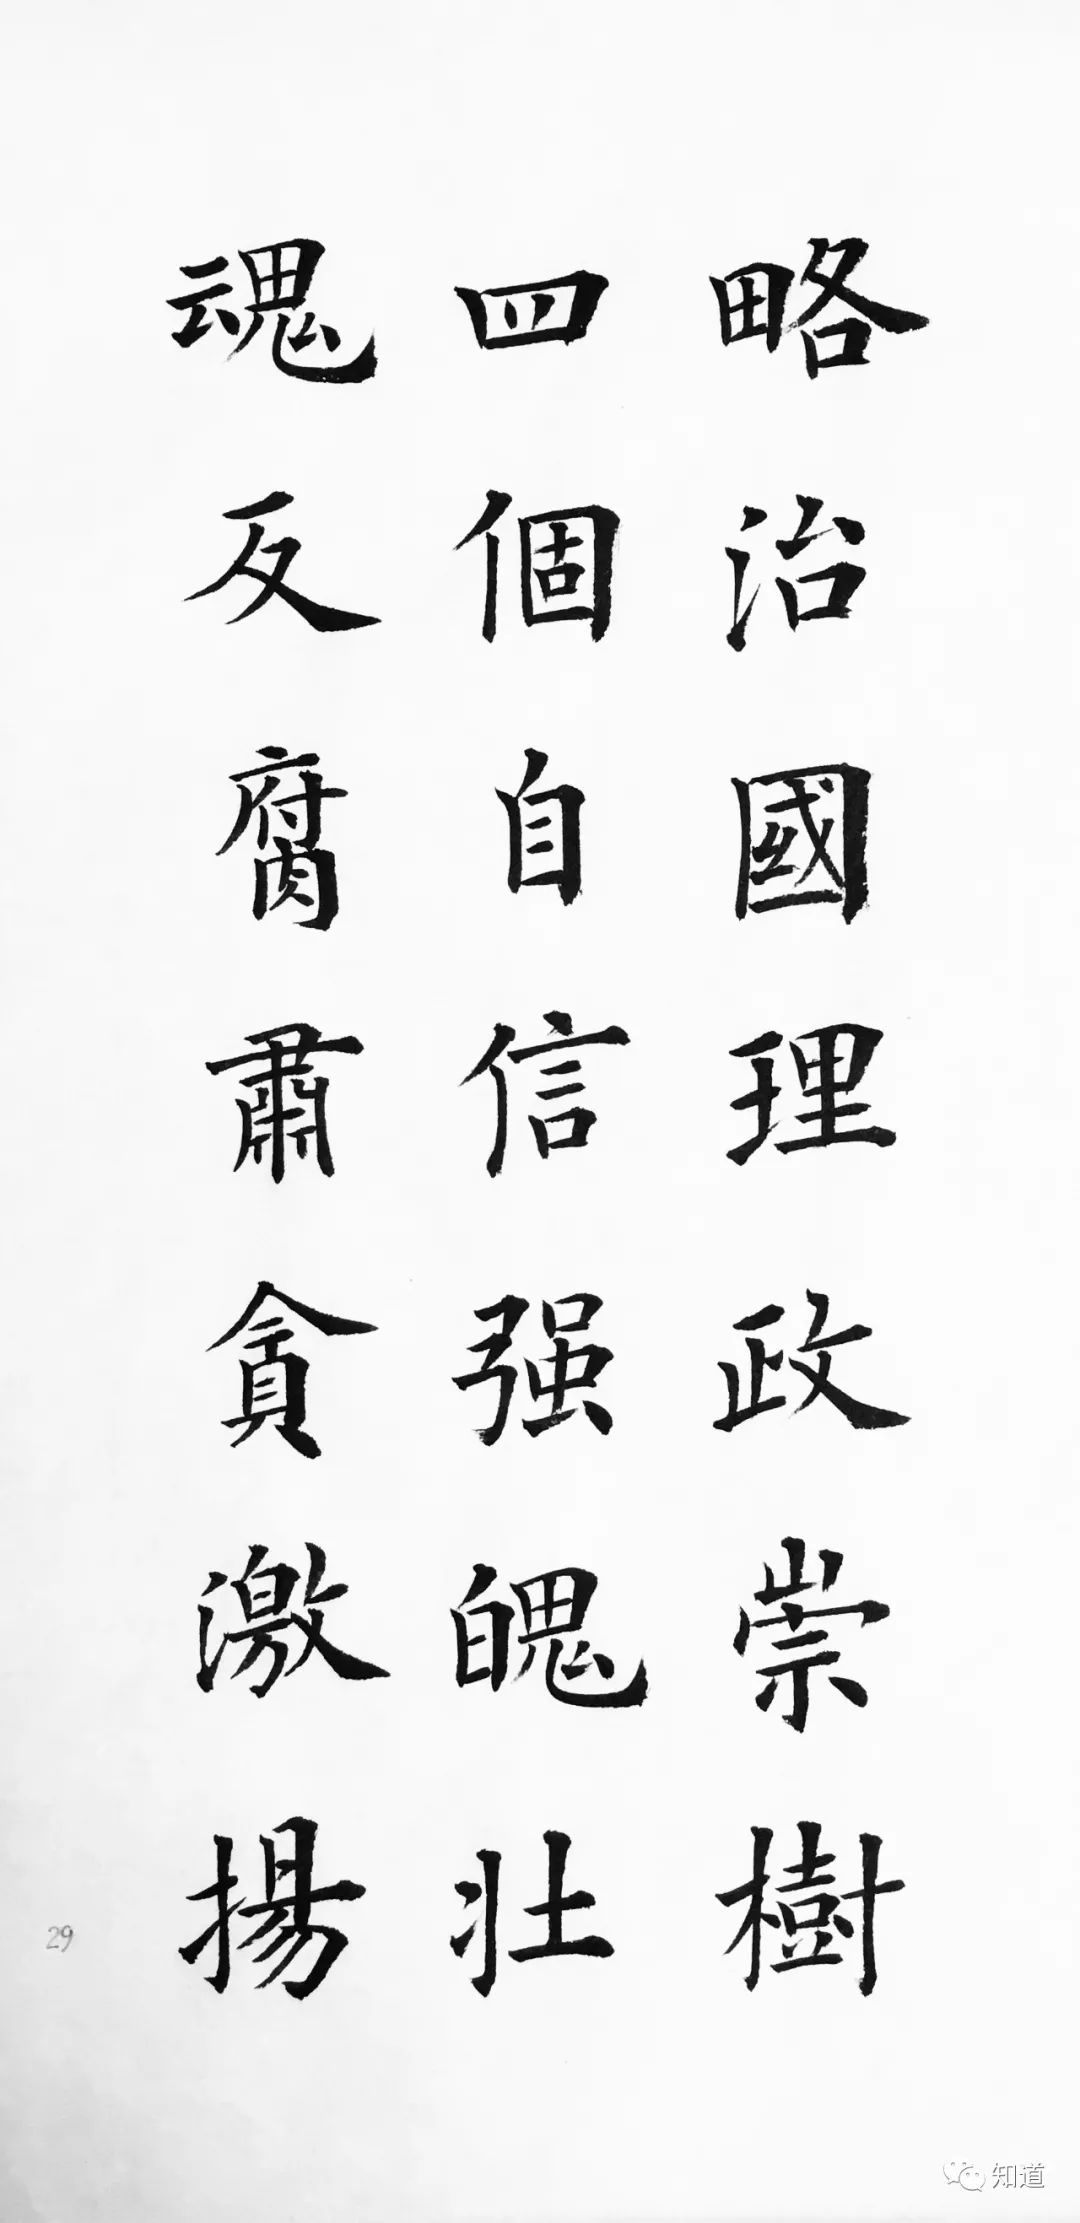 略治國理政崇樹
四個自信强魄壯
魂反腐肅貪激揚
29
知道